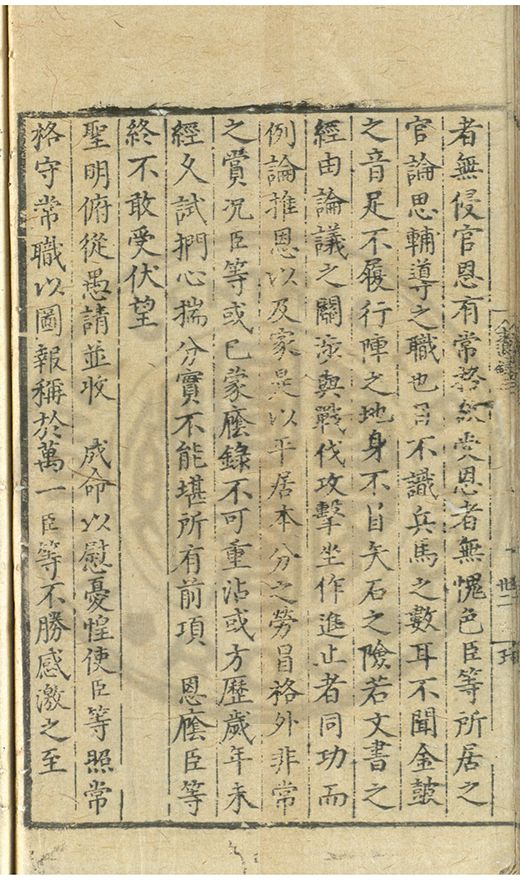 者無侵官恩有常格則受恩者無愧色臣等所居之
官論思輔導之職也目不識兵馬之數耳不聞金鼓
之音足不履行陣之地身不冒矢石之險若文書之
經由論議之關涉與戰伐攻擊坐作進止者同功而
例論推恩以及家是以平居本分之勞冒格外非常
之賞况臣等或已蒙廕錄不可重沾或方歷歲年未
經久試捫心揣分實不能堪所有前項 恩廕臣等
終不敢受伏望
聖明俯從愚請並收 成命以慰憂惶使臣等照常
格守常職以圖報稱於萬一臣等不勝感激之至
廿二